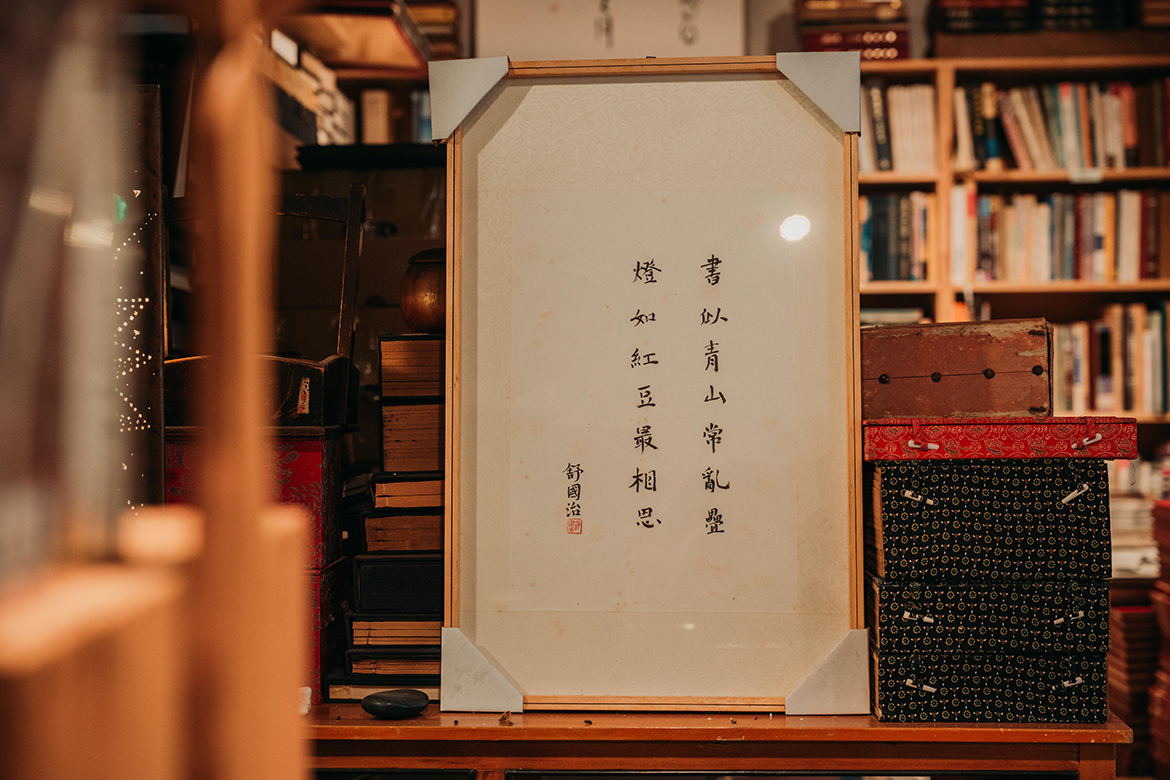 書似青山常亂疊
燈如紅豆最相思
舒國治